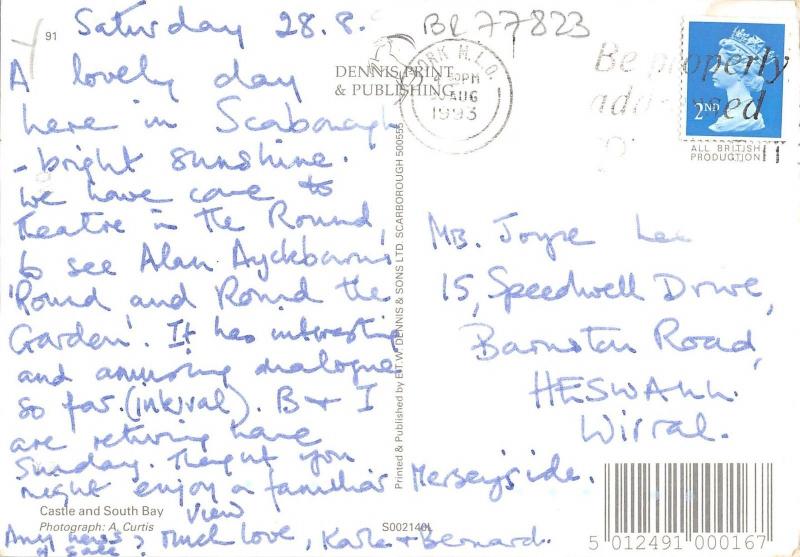 91
Saturday 28.8.
BR77823
A lovely day
here in Scaborough
- bright sunshine.
We have come to
Theatre in the Round,
to see Alan Ayckbourn's
'Round and Round the
Garden'. It has interesting
and amusing dialogue
so far. (interval). B + I
are returing home
Sunday. Thought you
might enjoy a familiar
view
Any news
of sale? Much love, Kate + Bernard.
DENNIS PRINT
& PUBLISHING
YORK M.L.O.
PM
30 AUG
1993
Be properly
addressed
2ND
ALL BRITISH
PRODUCTION
Mrs. Joyce Lee
15, Speedwell Drive,
Barnston Road,
HESWALL.
Wirral.
Merseyside.
Printed & Published by E.T.W. DENNIS & SONS LTD. SCARBOROUGH 500555
Castle and South Bay
Photograph: A. Curtis
S002140L
5 012491 000167